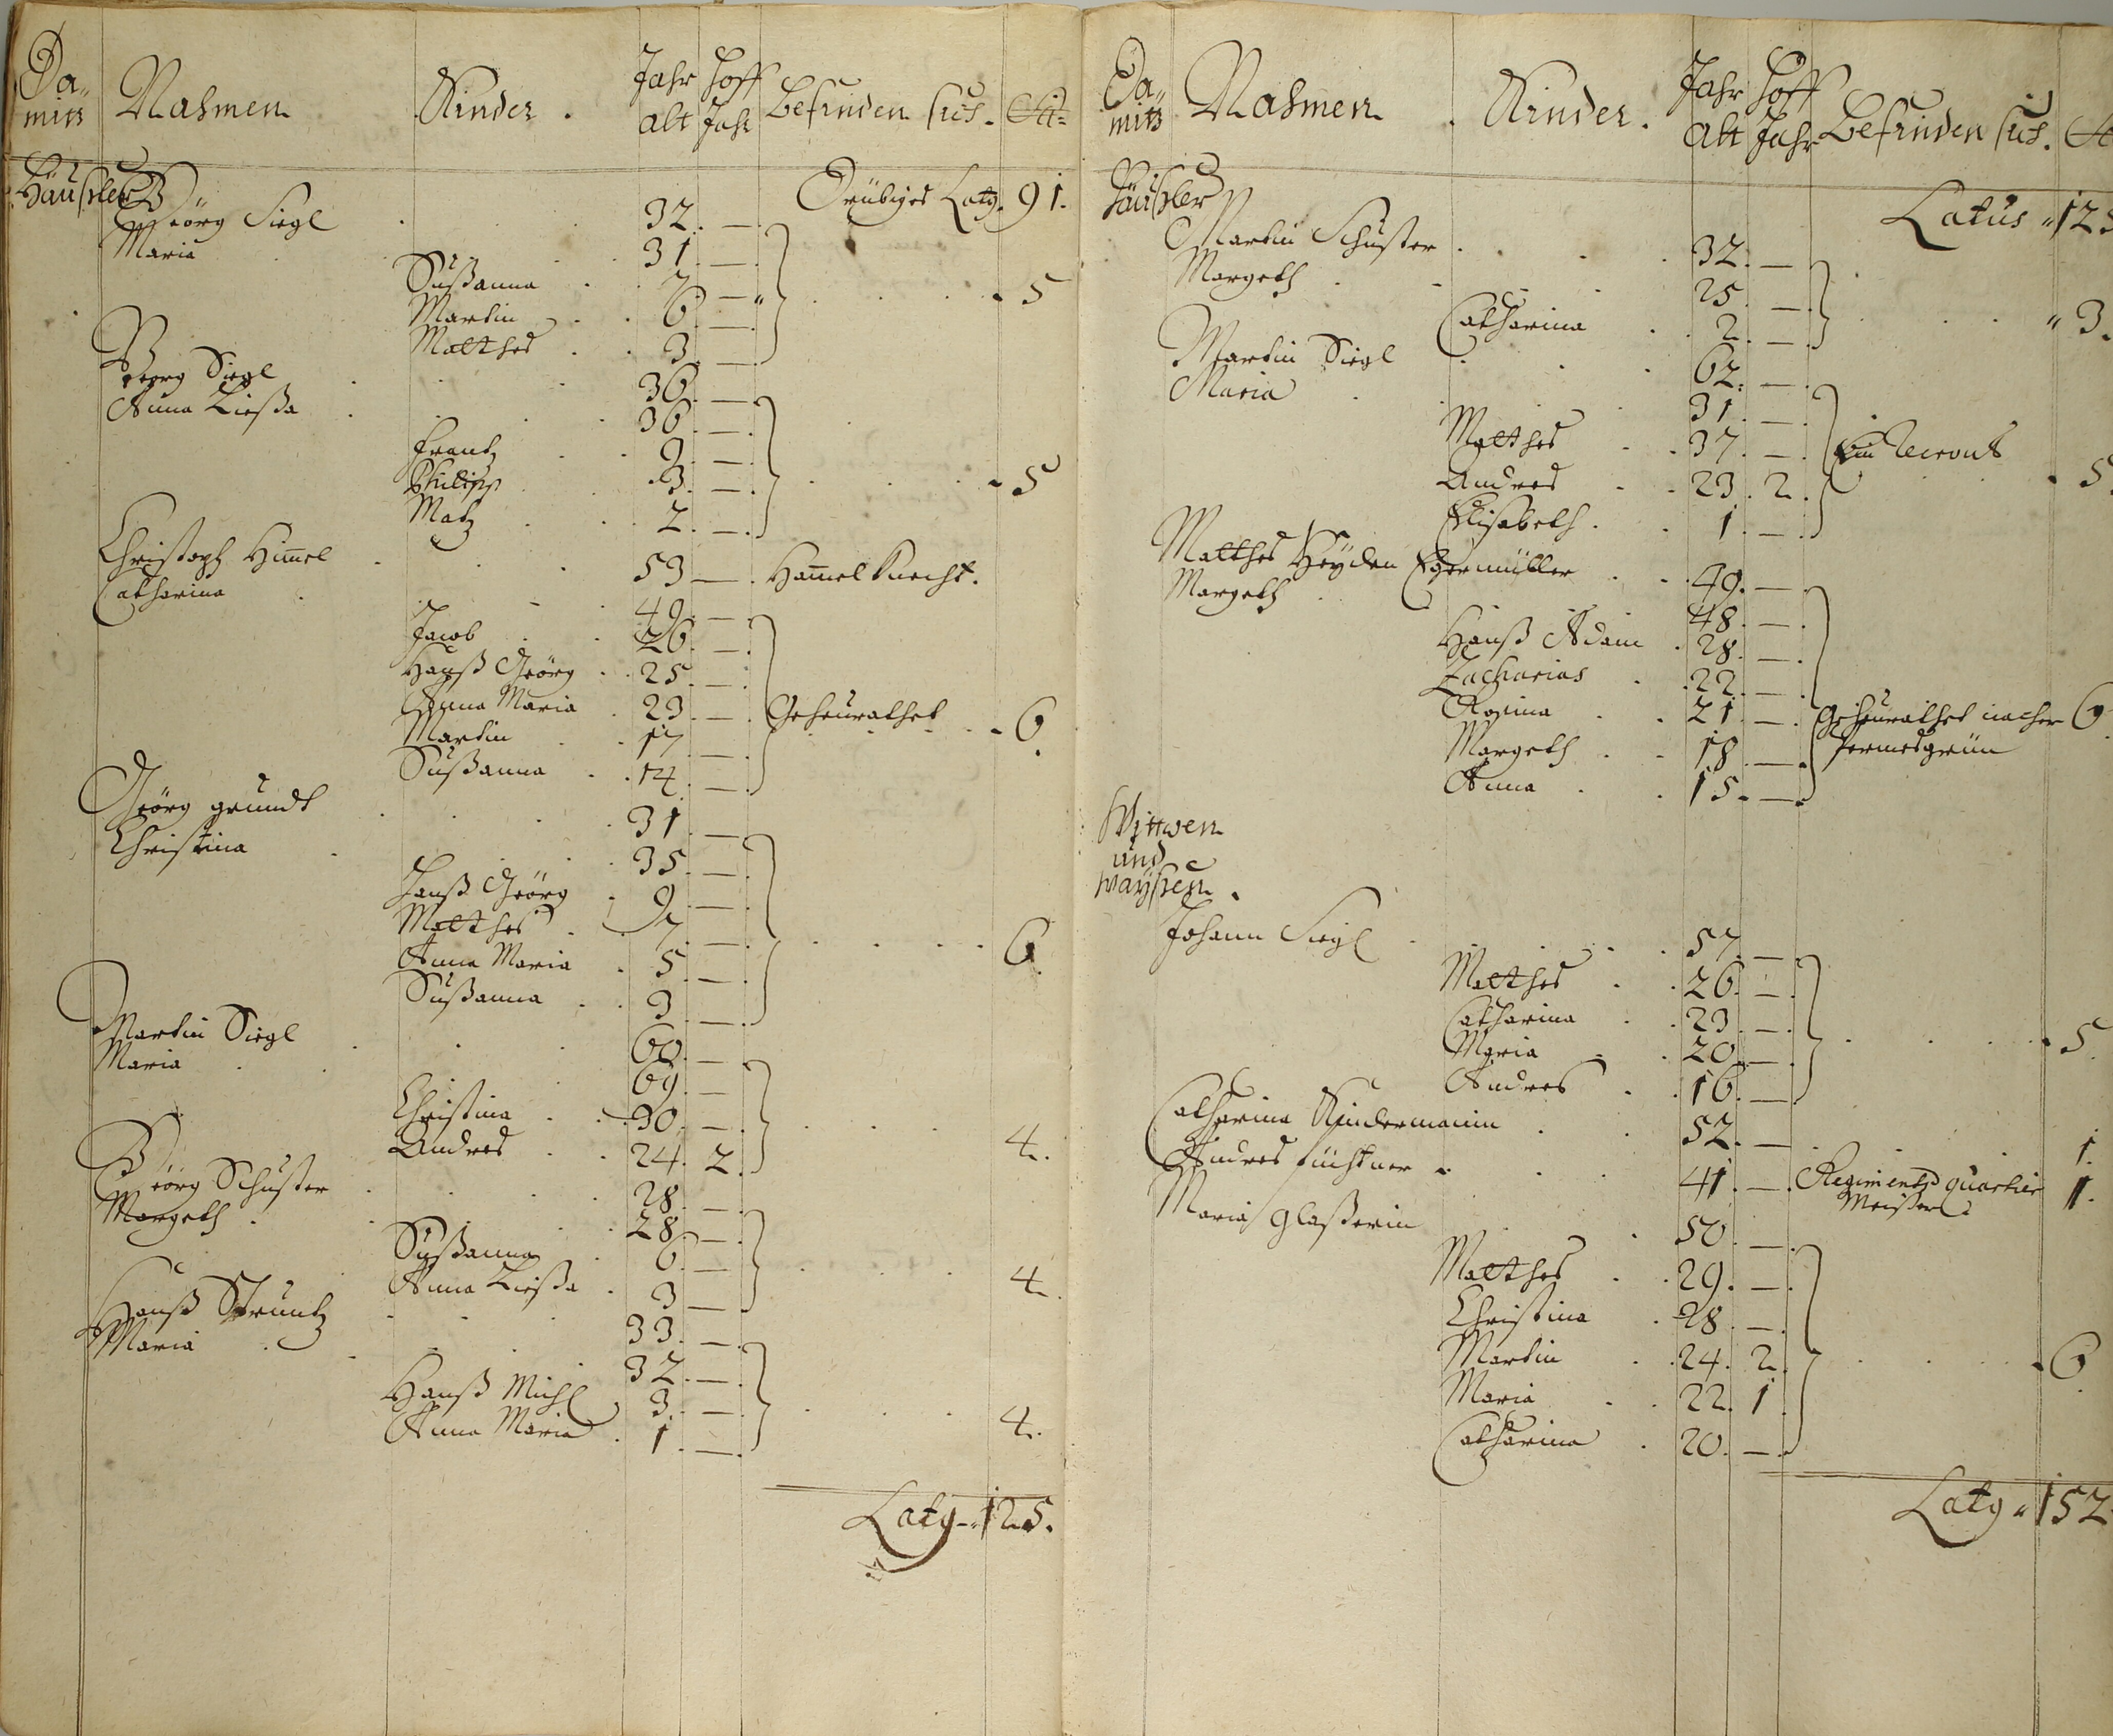 Da„ mitz Nahmen Kinder . Jahr alt Hoff Jahr befinden sich .
Häußler Drübiges Latg. 91.
Geörg Siegl 32. —
Maria 31. —
Sußanna 7. —
Martin 6. — 5
Matthes 3. —
Georg Siegl 36. —
Anna Liesßa 36. —
Frantz 9. —
Philipp 3. — 5
Matz 2. —
Christoph Him̄el 53 — Ham̄el Knecht.
Catharina 49. —
Jacob 26. —
Hanß Geörg 25. —
Anna Maria 23. — Geheurathet 6
Martin 17. —
Sußanna 14. —
Geörg grundt 31. —
Christina 35. —
Hanß Geörg 9. —
Matthes 7. —
Anna Maria 5. — 6.
Sußanna 3. —
Martin Siegl 60. —
Maria 69. —
Christina 30. —
Andres 24. 2. 4.
Geörg Schuster 28. —
Margeth 28. —
Sußanna 6. —
Anna Liesßa 3. — 4.
Hanß Struntz 33. —
Maria 32. —
Hanß Michl 3. —
Anna Maria 1. — 4.
Latg. 125.
Da„ mitz Nahmen . Kinder . Jahr alt Hoff Jahr befinden sich .
Häußler Latus „ 125
Martin Schuster 32. —
Margeth 25. —
Catharina 2. — „ 3.
Martin Siegl 62. —
Maria 31. —
Matthes 37. — Ein Recrout
Andres 23. 2. 5.
Elisabeth 1. —
Matthes Heyden Egermüller 49. —
Margeth 48. —
Hanß Adam 28. —
Zacharias 22. —
Rosina 21. — Geheurathet nacher
Margeth 18. — Fermesgrün
Anna 15. —
Wittwen
und
Wayßen .
Johann Siegl 57. —
Matthes 26. —
Catharina 23. —
Maria 20. — 5.
Andres 16. —
Catharina Kindermanin 52. — 1.
Andres füchtner 41. — Regiments quartier 1.
Meister
Maria Glaßerin 50. —
Matthes 29. —
Christina 28. —
Martin 24. 2.
Maria 22. 1 6
Catharina 20. —
Latg „ 152